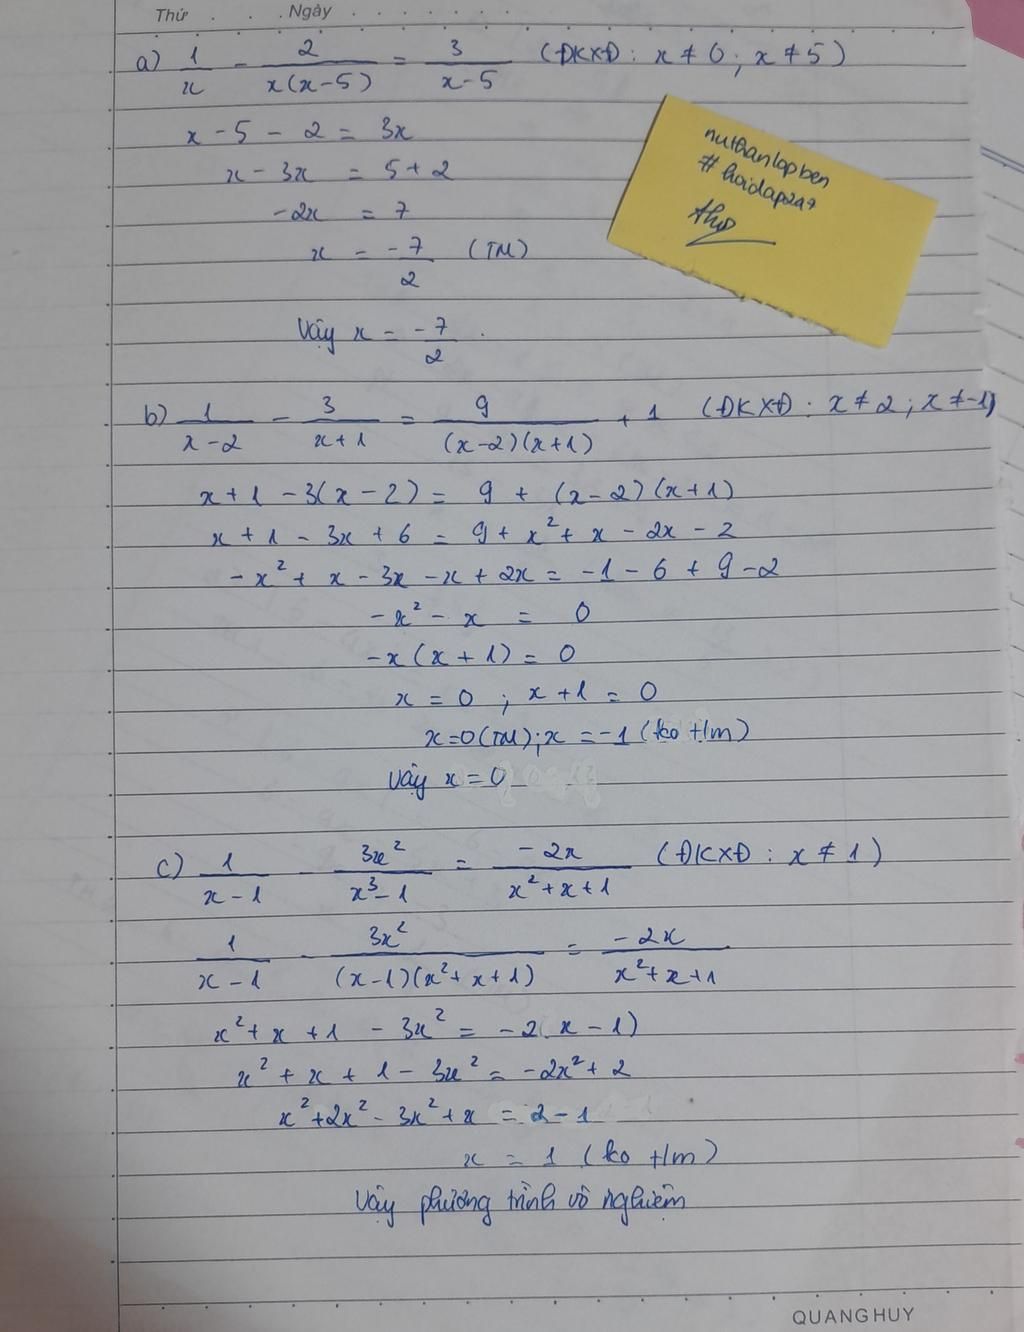 Thứ . . Ngày . . . . . . .
a) 1/x - 2/x(x-5) = 3/x-5 (ĐKXĐ: x ≠ 0; x ≠ 5)
x - 5 - 2 = 3x
x - 3x = 5 + 2
-2x = 7
x = -7/2 (TM)
Vậy x = -7/2.
nuthanlopben
# hoidap247
thw
b) 1/x-2 - 3/x+1 = 9/(x-2)(x+1) + 1 (ĐKXĐ: x ≠ 2; x ≠ -1)
x + 1 - 3(x - 2) = 9 + (x-2)(x+1)
x + 1 - 3x + 6 = 9 + x² + x - 2x - 2
-x² + x - 3x - x + 2x = -1 - 6 + 9 - 2
-x² - x = 0
-x(x + 1) = 0
x = 0; x + 1 = 0
x=0(TM); x = -1 (ko t/m)
Vậy x = 0
c) 1/x-1 - 3x²/x³-1 = -2x/x²+x+1 (ĐKXĐ: x ≠ 1)
1/x-1 - 3x²/(x-1)(x²+x+1) = -2x/x²+x+1
x² + x + 1 - 3x² = -2( x - 1)
x² + x + 1 - 3x² = -2x² + 2
x² + 2x² - 3x² + x = 2 - 1
x = 1 (ko t/m)
Vậy phương trình vô nghiệm
QUANG HUY